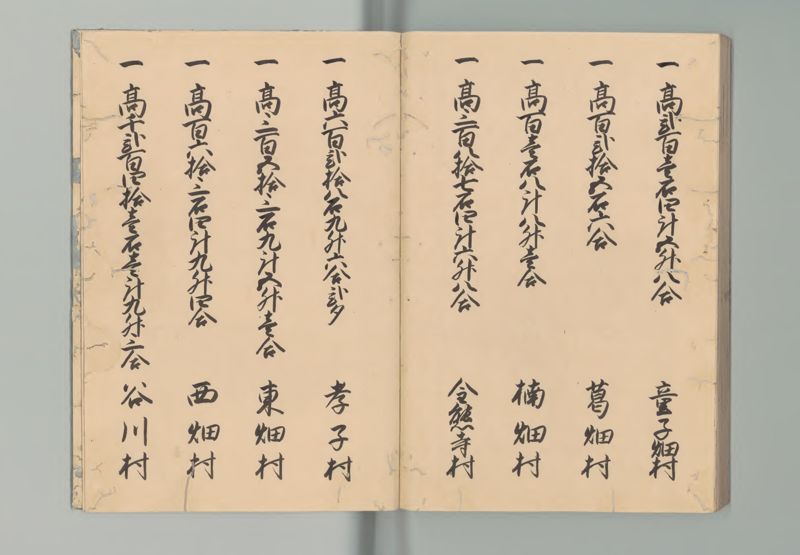 一 高弐百壱石四斗六升八合 童子畑村
一 高百弐拾五石六合 葛畑村
一 高百壱石八斗八升壱合 楠畑村
一 高三百八拾七石四斗六升八合 金熊寺村
一 高六百弐拾八石九升六合弐夕 孝子村
一 高三百五拾三石九斗五升壱合 東畑村
一 高百六拾三石四斗九升四合 西畑村
一 高千弐百四拾壱石壱斗九升三合 谷川村